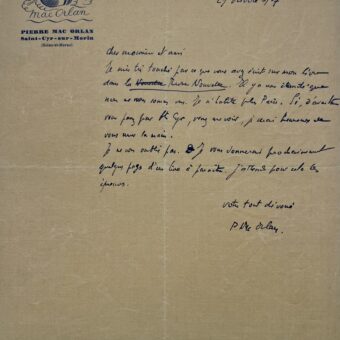 Mac Orlan
PIERRE MAC ORLAN
Saint-Cyr-sur-Morin
(Seine-et-Marne)
cher monsieur et ami
Je suis très touché par ce que vous avez écrit sur mon livre
dans la Nouvelle Revue Nouvelle. Il y a
que nous ne nous. Je n'habite plus Paris. Si,
vous passez par St Cyr, venez me voir, je serai heureux de
vous serrer la main.
Je ne oublie pas. Je vous donnerai prochainement
quelques pages d'un livre à paraître. J'attends pour cela les
épreuves.
votre tout dévoué
P Mac Orlan.